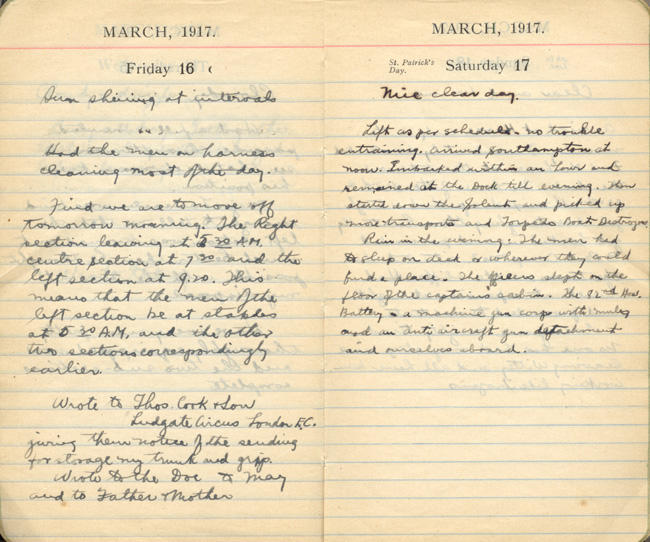 MARCH, 1917.
Friday 16
Sun shining at intervals
Had the men on harness
cleaning most of the day.
Find we are to move off
tomorrow morning. The Right
section leaving at 5 30 A.M.
centre section at 7 20 and the
left section at 9.20. This
means that the men of the
left section be at stables
at 5 30 A.M. and the other
two sections correspondingly
earlier.
Wrote to Thos. Cook & Son
Ludgate Circus London E.C.
giving them notice of the sending
for storage my trunk and grip.
Wrote to the Doc to May
and to Father & Mother
MARCH, 1917.
St. Patrick's
Day.
Saturday 17
Nice clear day.
Left as per schedule. no trouble
entraining. arrived Southampton at
noon. Embarked within an hour and
remained at the Dock till evening. then
started down the Solent and picked up
more transports and Torpedo Boat Destroyers.
Rain in the evening. The men had
to sleep on deck or wherever they could
find a place. The officers slept on the
floor of the captains cabin. The 82nd How.
Battery a machine gun corps with mules
and an anti aircraft gun detachment
and ourselves aboard.